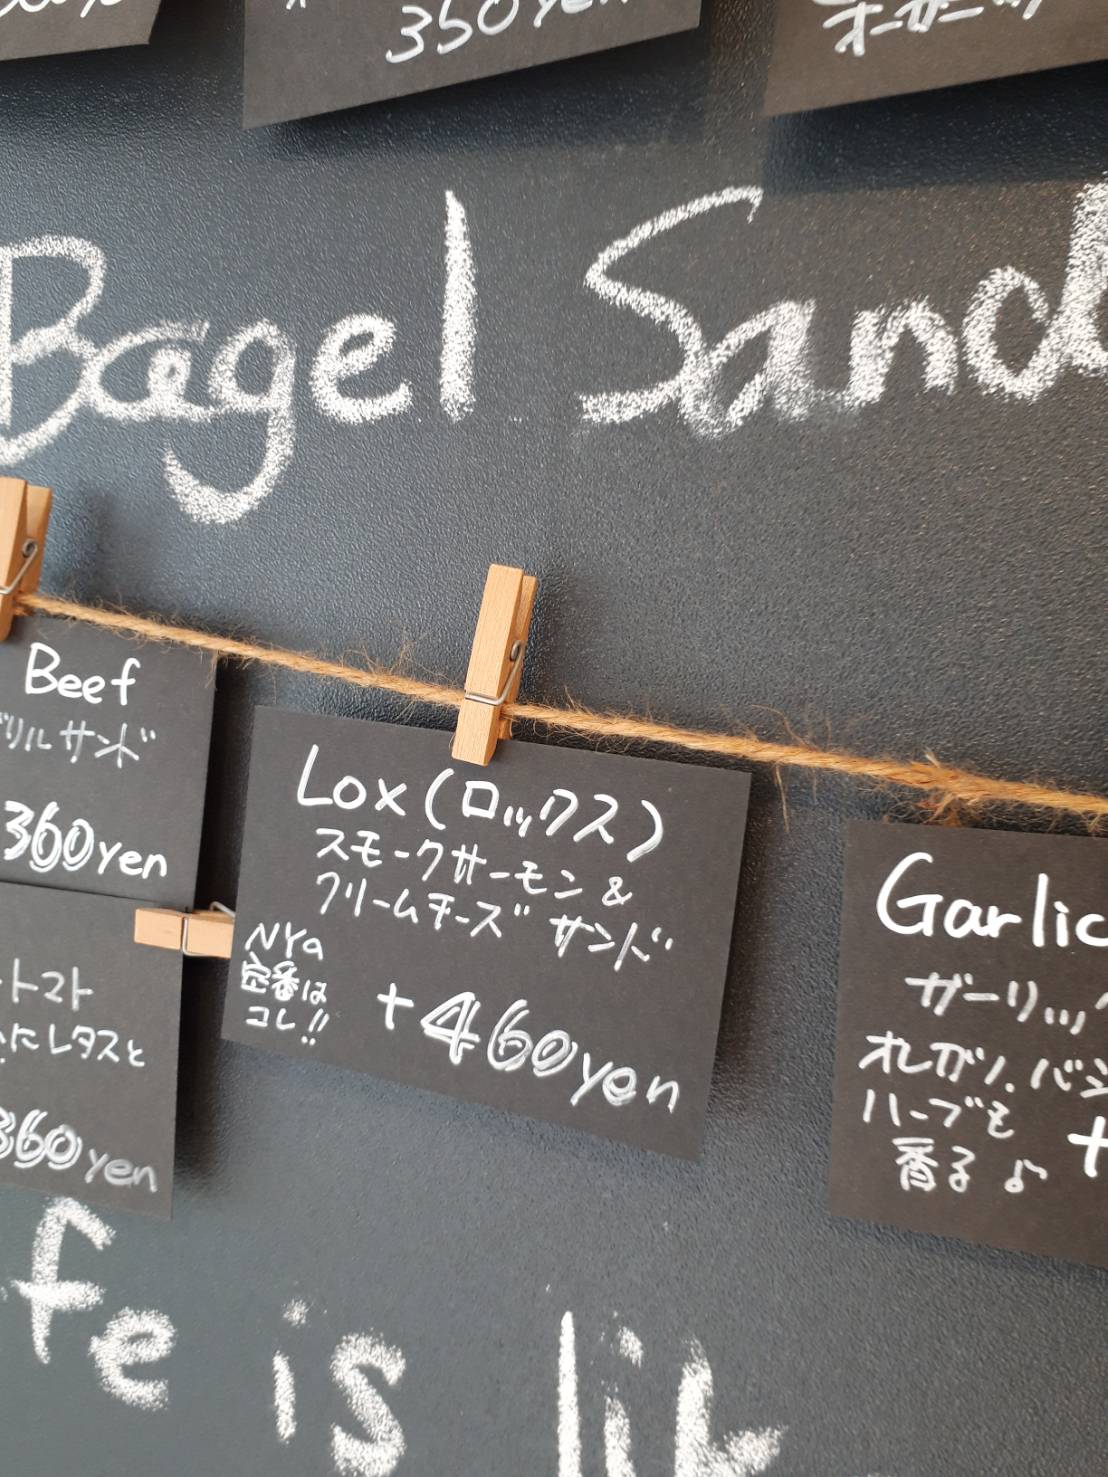 350yen
オーガニック
Bagel Sand
Beef
グリルサンド
360yen
トマト
にレタスと
360yen
Lox (ロックス)
スモークサーモン &
クリームチーズ サンド
NYの
定番は
コレ!!
+460yen
Garlic
ガーリック
オレガノ、バジ
ハーブを
香る♪
+
fe is lik